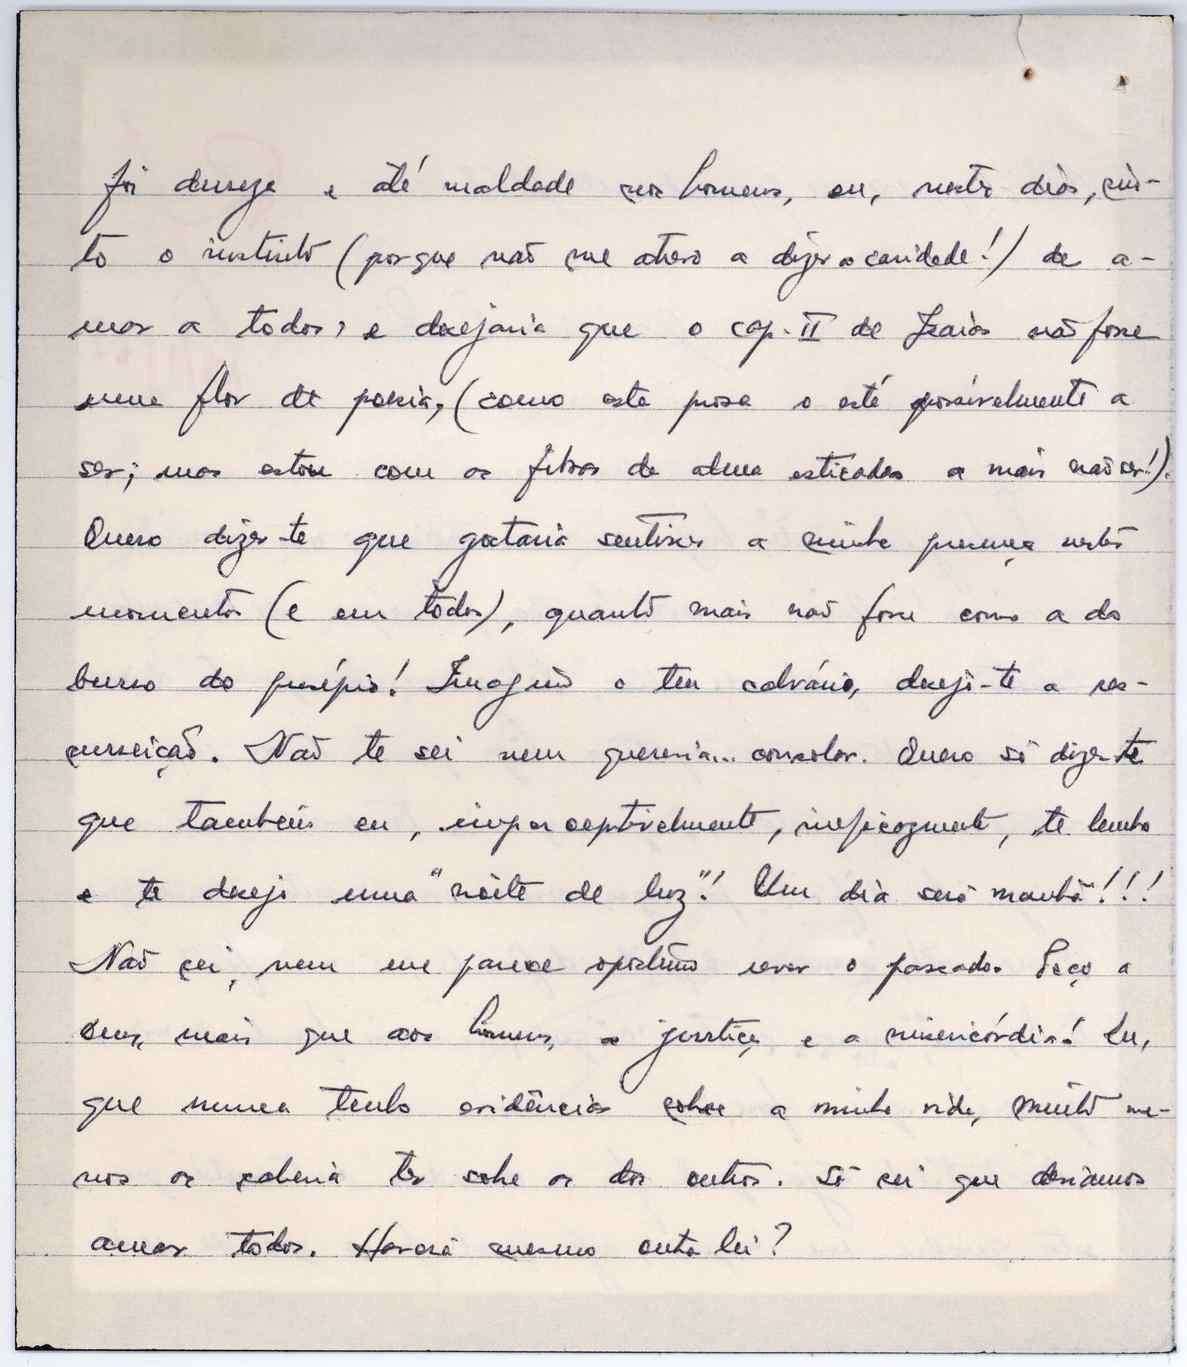 foi dureza e até maldade nos homens, eu, nestes dias, sin-
to o instinto (porque não me atrevo a dizer a caridade!) de a-
mar a todos, e desejaria que o cap. II de Isaías não fosse
uma flor de poesia, (como esta prosa o está possivelmente a
ser; mas estou com as fibras da alma esticadas a mais não ser!).
Quero dizer-te que gostaria sentisses a minha presença nestes
momentos (e em todos), quanto mais não fosse como a do
burro do presépio! Imagino o teu calvário, desejo-te a res-
surreição. Não te sei nem quereria... consolar. Quero só dizer-te
que também eu, imperceptivelmente, ineficazmente, te lembro
e te desejo uma "noite de luz"! Um dia será manhã!!!
Não sei, nem me parece opor­tuno rever o passado. Peço a
Deus, mais que aos homens, a justiça e a misericórdia! Eu,
que nunca tenho evidências sobre a minha vida, muito me-
nos as saberia ter sobre as dos outros. Só sei que devíamos
amar todos. Haverá mesmo outra lei?